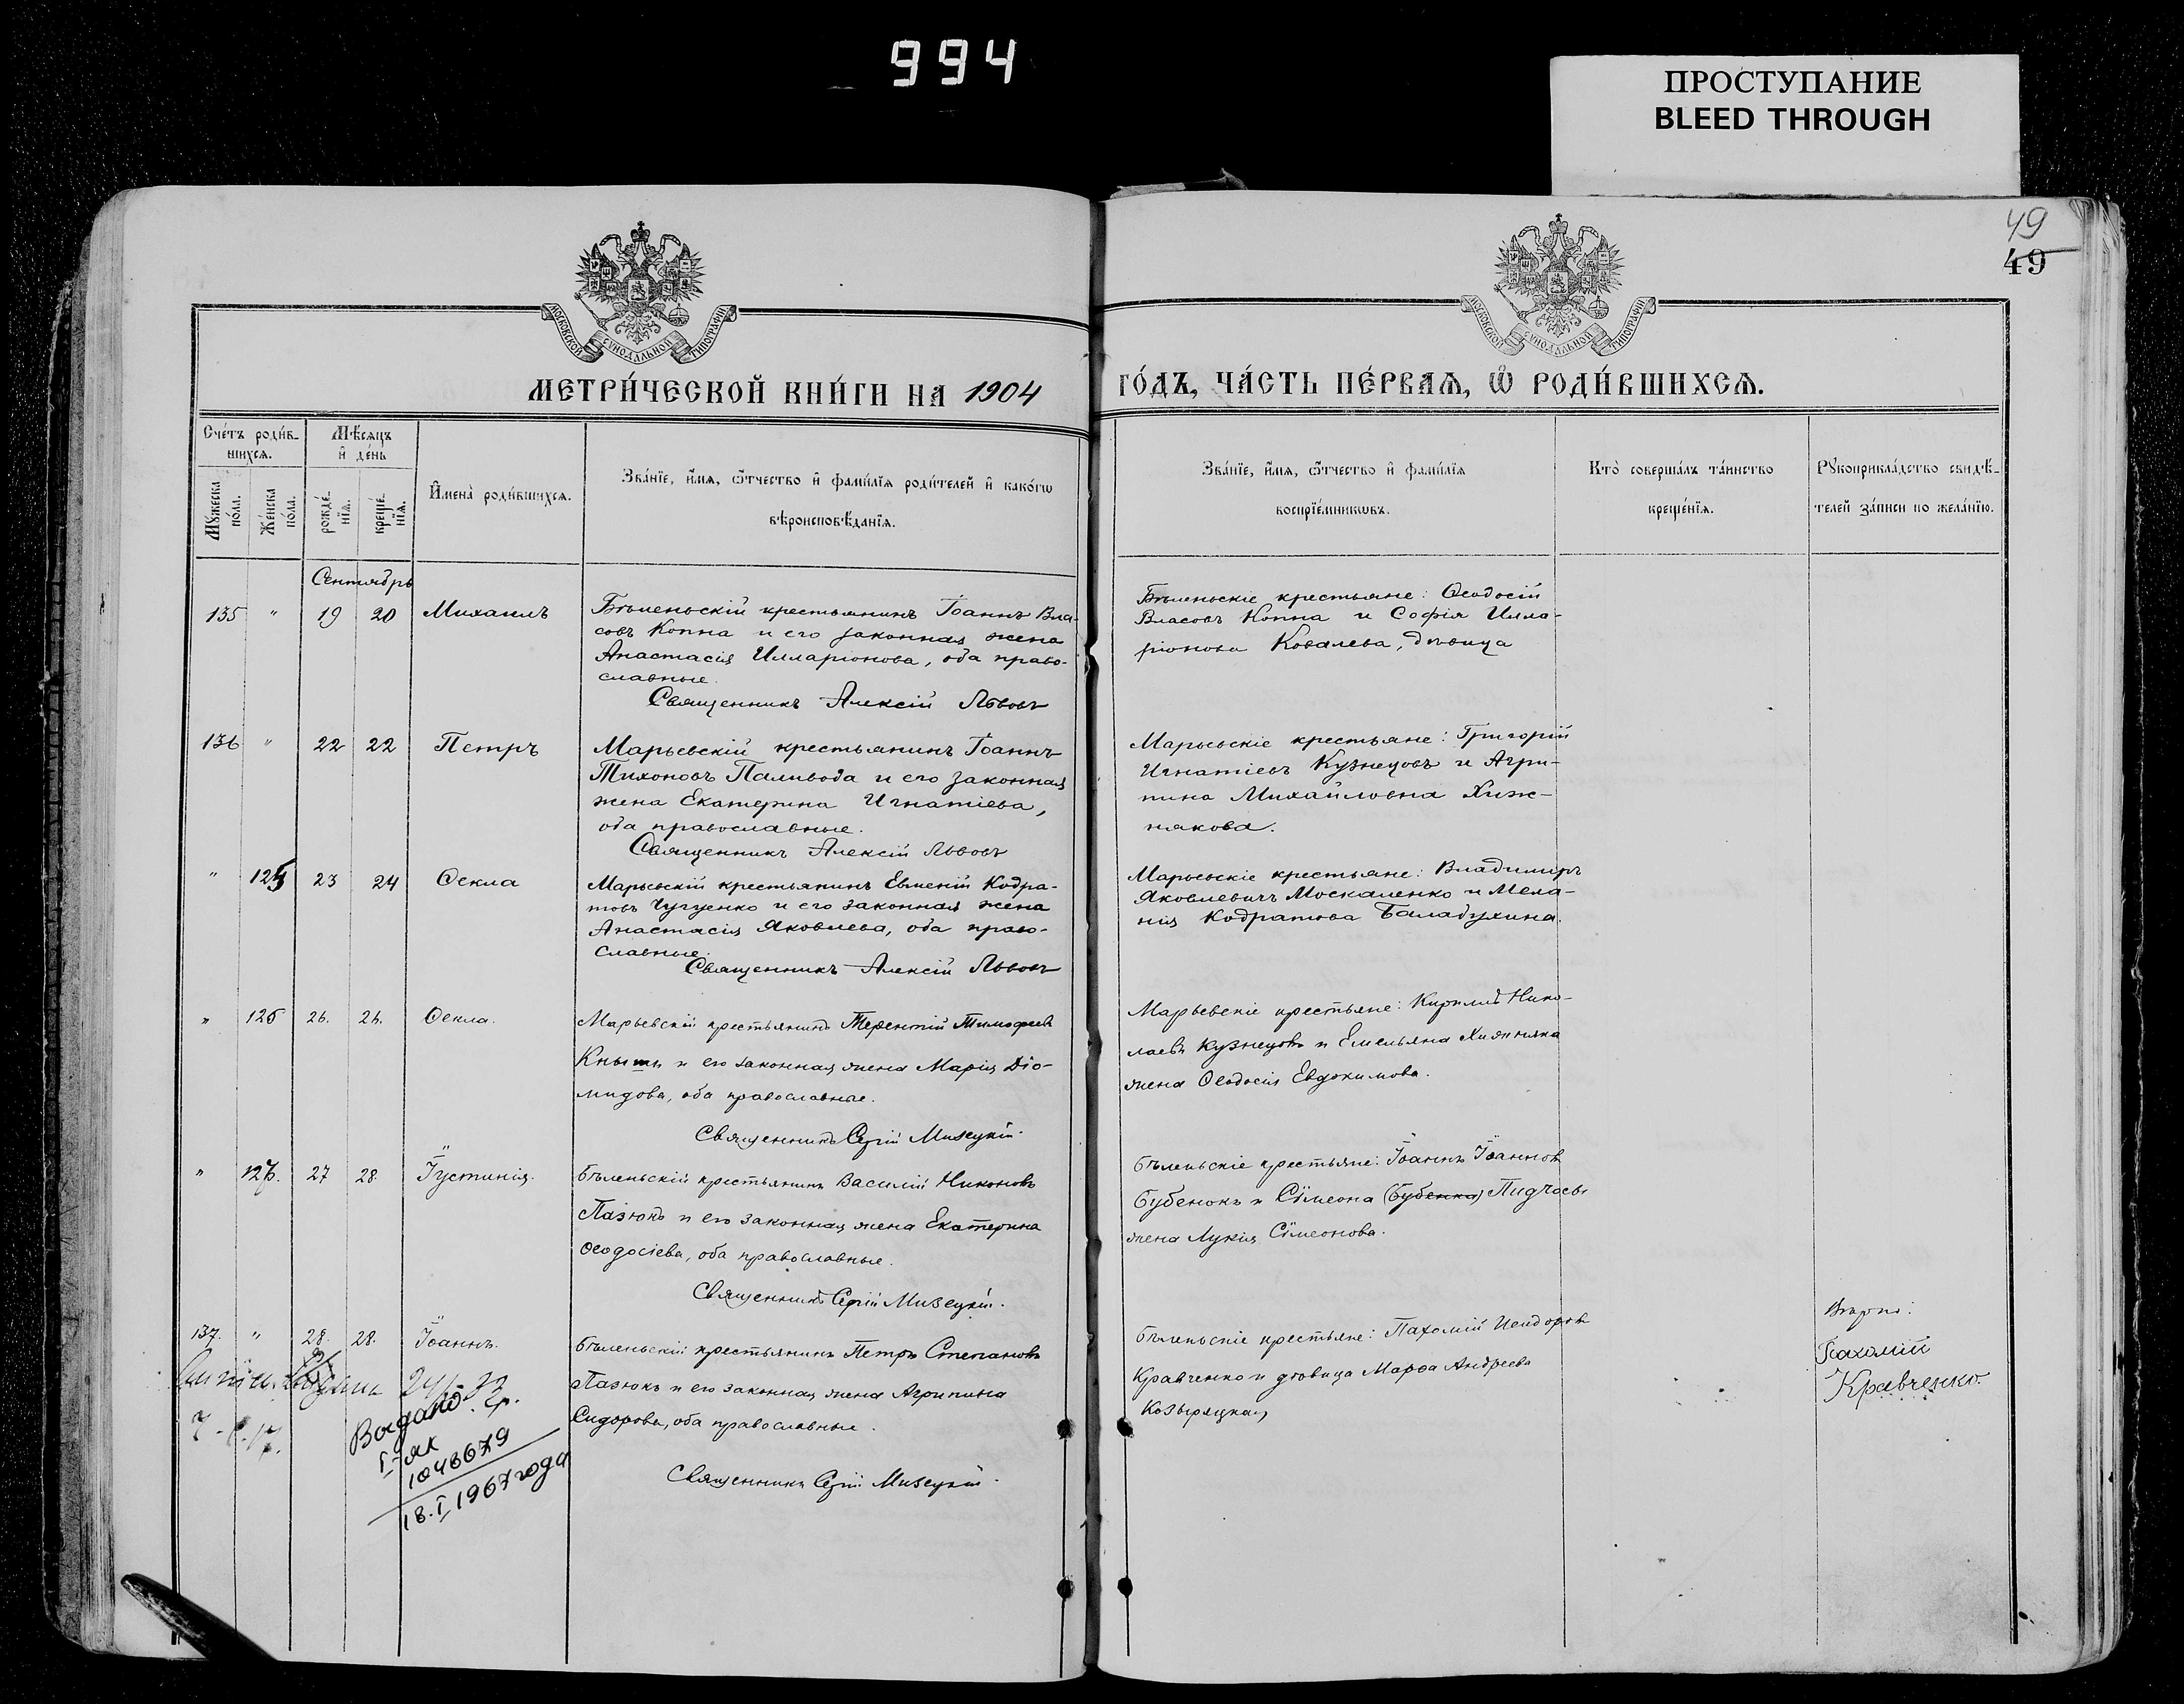 994
ПРОСТУПАНИЕ
BLEED THROUGH
49
49
МОСКОВСКОЙ СѴНОДАЛЬНОЙ ТИПОГРАФІИ
МОСКОВСКОЙ СѴНОДАЛЬНОЙ ТИПОГРАФІИ
МЕТРИ́ЧЕСКОЙ КНИ́ГИ НА 1904
ГО́ДЪ, ЧА́СТЬ ПЕ́РВАѦ, Ѡ҆ РОДИ́ВШИХСѦ.
Сче́тъ роди́в-
шихсѧ.
Мѣ́сѧцъ
и҆ де́нь
Мꙋ́жеска
по́ла.
Же́нска
по́ла.
рожде́-
нїѧ.
креще́-
нїѧ.
И҆мена̀ роди́вшихсѧ.
Зва́нїе, и҆́мѧ, ѻ҆́тчество и҆ фами́лїѧ роди́телей и҆ како́гѡ
вѣроисповѣ́данїѧ.
Зва́нїе, и҆́мѧ, ѻ҆́тчество и҆ фами́лїѧ
воспрїе́мникѡвъ.
Кто̀ соверша́лъ та́инство
креще́нїѧ.
Рꙋкоприкла́дство свидѣ́-
телей за́писи по жела́нїю.
Сентябрь
135 " 19 20 Михаилъ
Бѣленьскій крестьянинъ Іоаннъ Вла-
совъ Коппа и его законная жена
Анастасія Илларіонова, оба право-
славные.
Священникъ Алексій Львовъ
Бѣленьскіе крестьяне: Ѳеодосій
Власовъ Коппа и Софія Илла-
ріонова Ковалева, дѣвица
136 " 22 22 Петръ
Марьевскій крестьянинъ Іоаннъ
Тихоновъ Паливода и его законная
жена Екатерина Игнатіева,
оба православные.
Священникъ Алексій Львовъ
Марьевскіе крестьяне: Григорій
Игнатіевъ Кузнецовъ и Агри-
пина Михайловна Хиж-
някова.
" 125 23 24 Ѳекла
Марьевскій крестьянинъ Евменій Кодра-
товъ Чугуенко и его законная жена
Анастасія Яковлева, оба право-
славные.
Священникъ Алексій Львовъ
Марьевскіе крестьяне: Владимиръ
Яковлевичъ Москаленко и Мела-
нія Кодратова Баладухина.
" 126 26. 26. Ѳекла.
Марьевскій крестьянинъ Терентій Тимофеев
Кнышъ и его законная жена Марія Діо-
мидова, оба православные.
Священникъ Сергій Мизецкій.
Марьевскіе крестьяне: Кириллъ Нико-
лаевъ Кузнецовъ и Емельяна Хижняка
жена Ѳеодосія Евдокимова.
" 127. 27 28. Іустинія.
Бѣленьскій крестьянинъ Василій Никоновъ
Пазюкъ и его законная жена Екатерина
Ѳеодосіева, оба православные.
Священникъ Сергій Мизецкій.
Бѣленьскіе крестьяне: Іоаннъ Іоаннов
Бубенокъ и Сѵмеона (Бубенка) Пидчасы
жена Лукія Сѵмеонова.
137. " 28. 28. Іоаннъ.
Бѣленьскій крестьянинъ Петръ Степановъ
Пазюкъ и его законная жена Агрипина
Сидорова, оба православные.
Священникъ Сергій Мизецкій.
Бѣленьскіе крестьяне: Пахомій Исидоров
Кравченко и дѣвица Марѳа Андреева
Козыряцкая
Вѣрно:
Пахомій
Кравченко.
I-як
1048679
18.I.1967 года